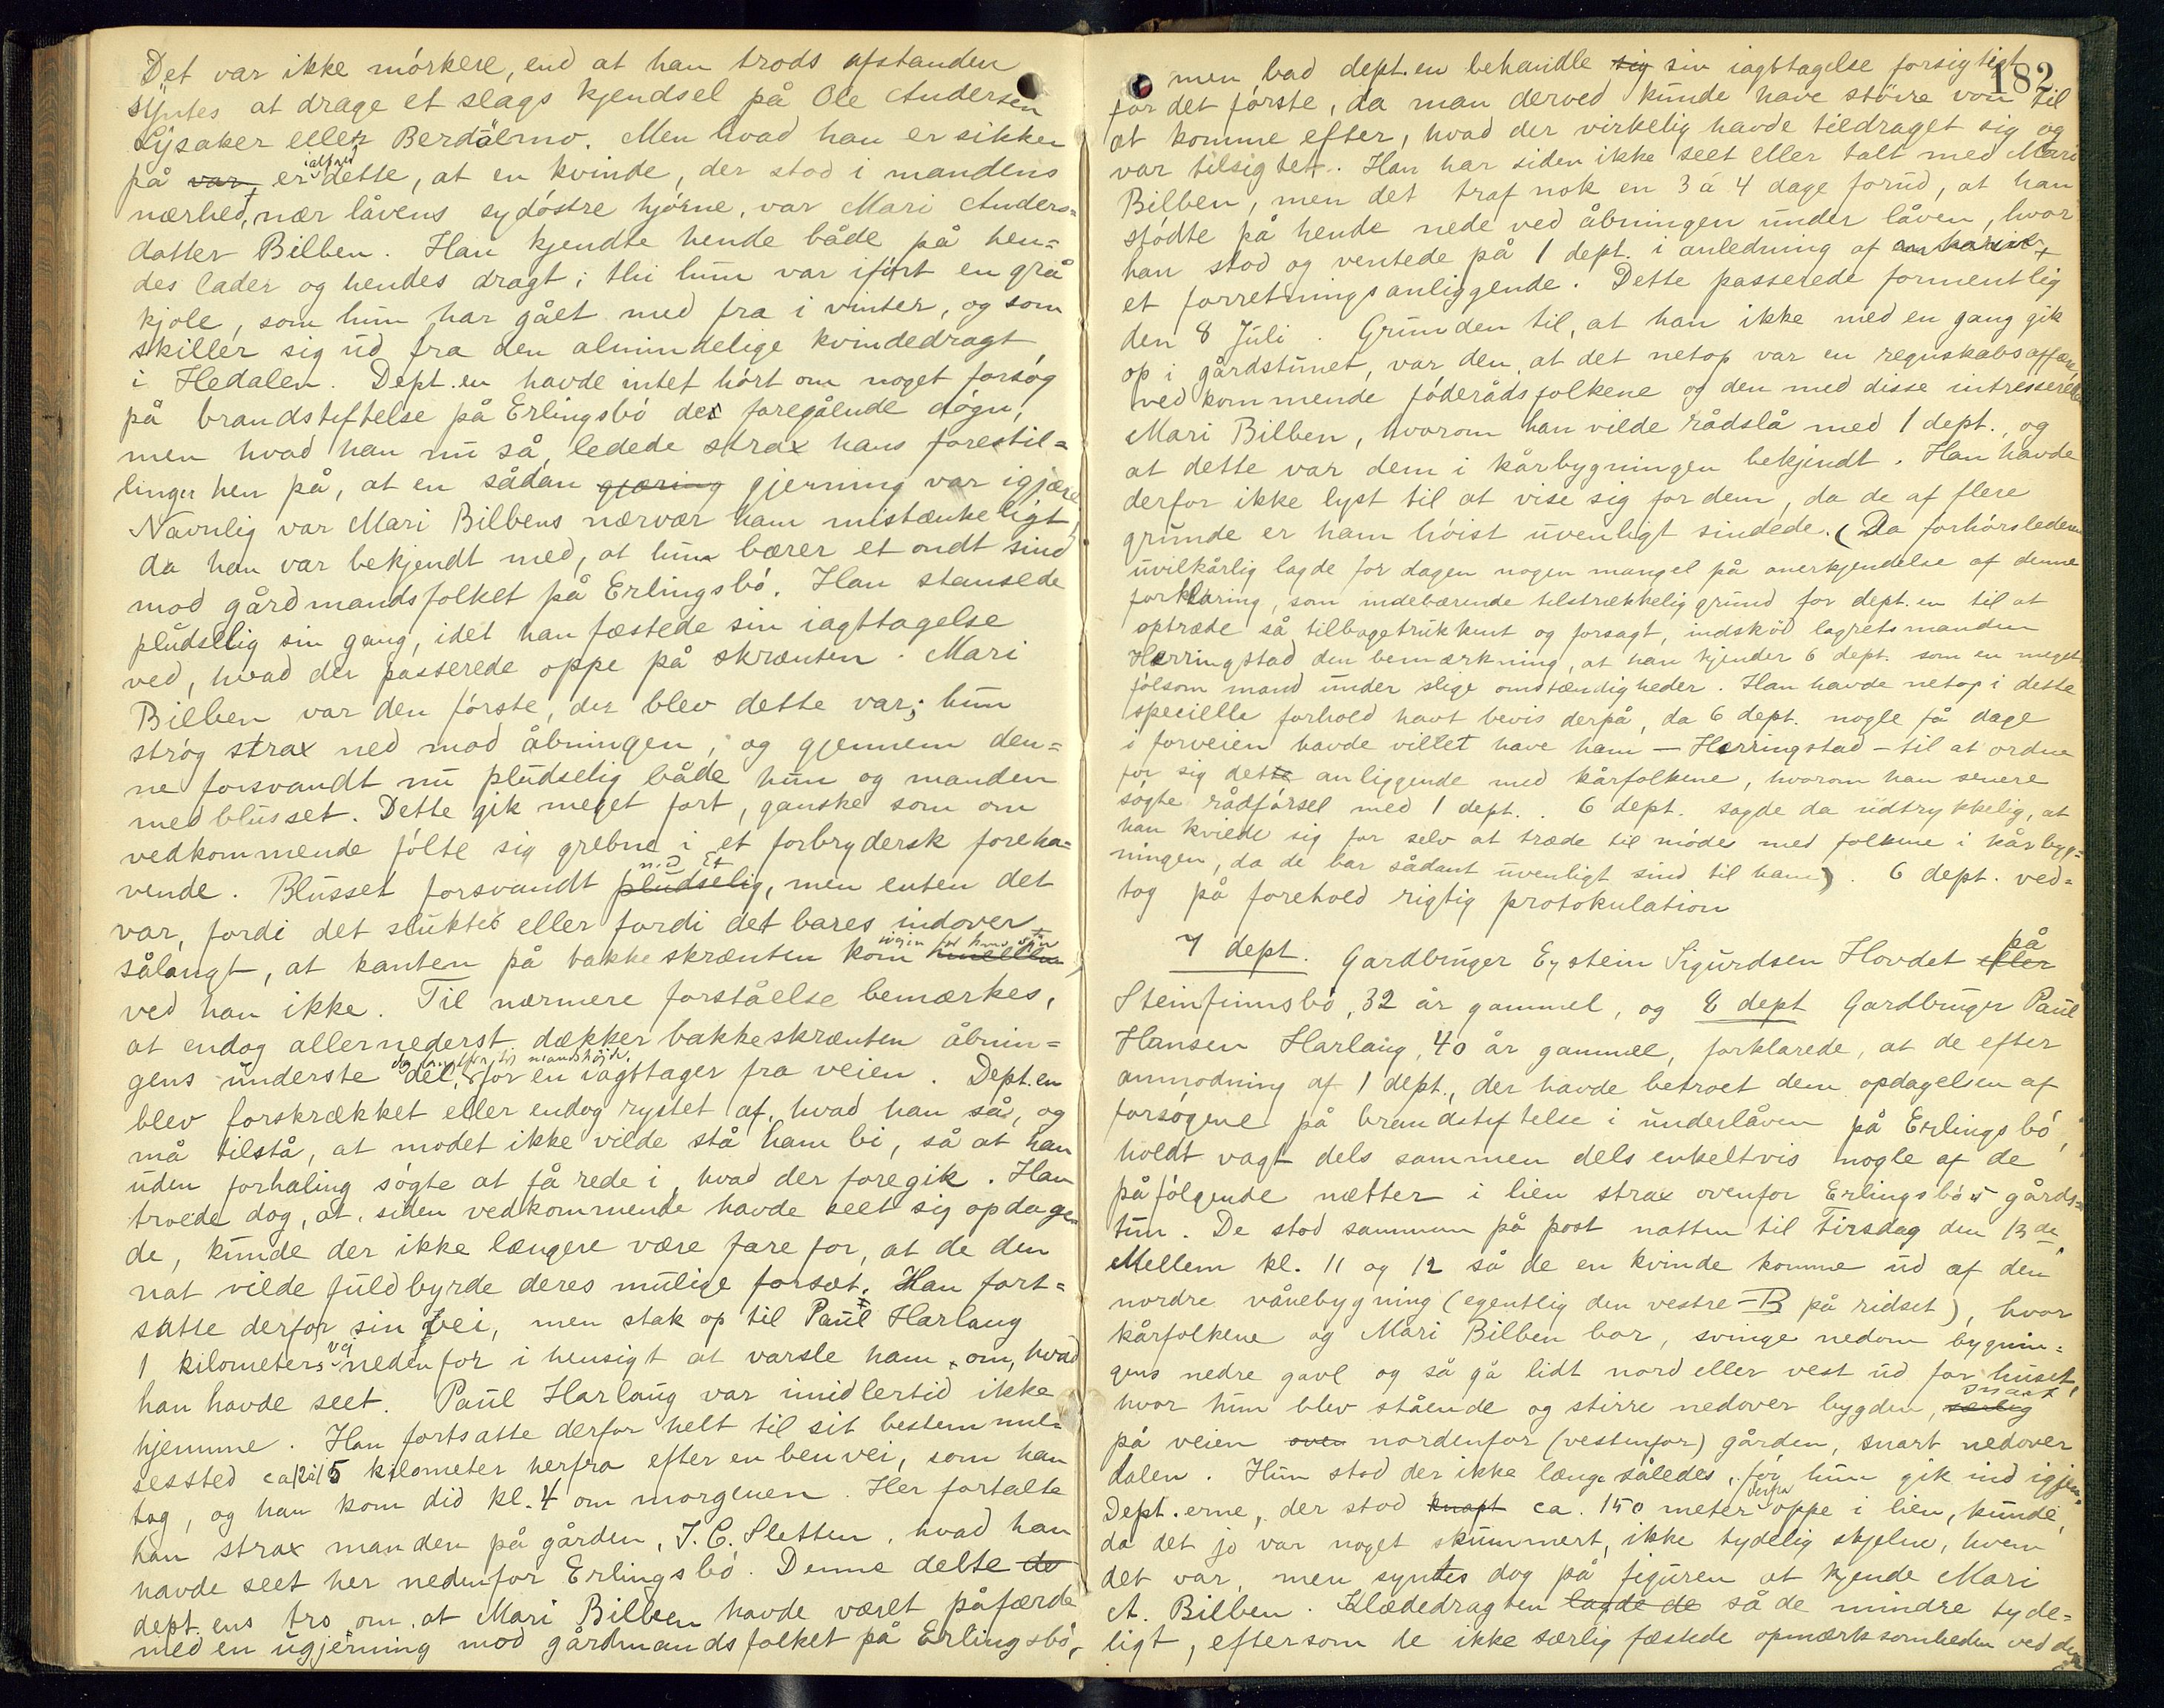 Det var ikke mórkere, end at han trods afstanden
syntes at drage et slags kjendsel på Ole Andersen
Lysaker eller Berdølmo. Men hvad han er sikker
på var, er ialfald dette, at en kvinde, der stod i mandens
nærhed, nær låvens sydóstre hjórne, var Mari Anders=
datter Bilben. Han kjendte hende både på hen=
des lader og hendes dragt; thi hun var ifórt en grå
kjole, som hun har gået med fra i vinter, og som
skiller sig ud fra den almindelige kvindedragt
i Hedalen. Dept.en havde intet hórt om noget forsóg
på brandstiftelse på Erlingsbó det foregående dógn,
men hvad han nu så, ledede strax hans forestil=
linger hen på, at en sådan gjæring gjerning var igjære.
Navnlig var Mari Bilbens nærvær ham mistænkeligt,
da han var bekjendt med, at hun bærer et ondt sind
mod gårdmandsfolket på Erlingsbó. Han stansede
pludselig sin gang, idet han fæstede sin iagttagelse
ved, hvad der passerede oppe på skrænten. Mari
Bilben var den fórste, der blev dette var; hun
stróg strax ned mod åbningen, og gjennem den=
ne forsvandt nu pludselig både hun og manden
med blusset. Dette gik meget fort, ganske som om
vedkommende fólte sig grebne i et forbrydersk foreha=
vende. Blusset forsvandt pludselig, men enten det
var, fordi det sluktes eller fordi det bares indover
sålangt, at kanten på bakkeskrænten kom
ved han ikke. Til nærmere forståelse bemærkes,
at endog allernederst dækker bakkeskrænten åbnin=
gens underste del, for en iagttager fra veien. Dept.en
blev forskrækket eller endog rystet af, hvad han så, og
må tilstå, at modet ikke vilde stå ham bi, så at han
uden forhaling sógte at få rede i, hvad der foregik. Han
troede dog, at, siden vedkommende havde seet sig opdage=
de, kunde der ikke længere være fare for, at de den
nat vilde fuldbyrde deres mulige forsæt. Han fort=
satte derfor sin vei, men stak op til Paul Harlaug
1 kilometers vej nedenfor i hensigt at varsle ham om, hvad
han havde seet. Paul Harlaug var imidlertid ikke
hjemme. Han fortsatte derfor helt til sit bestemmel=
sessted ca 12 á 15 kilometer herfra efter en benvei, som han
tog, og han kom did kl. 4 om morgenen. Her fortalte
han strax manden på gården, J. C. Sletten, hvad han
havde seet her nedenfor Erlingsbó. Denne delte de
dept.ens tro om, at Mari Bilben havde været påfærde
med en ugjerning mod gårdmandsfolket på Erlingsbó,
182
men bad dept.en behandle sig sin iagttagelse forsigtigt
for det fórste, da man derved kunde have stórre von til
at komme efter, hvad der virkelig havde tildraget sig og
var tilsigtet. Han har siden ikke seet eller talt med Mari
Bilben, men det traf nok en 3 á 4 dage forud, at han
stódte på hende nede ved åbningen under låven, hvor
han stod og ventede på 1 dept. i anledning af
et forretningsanliggende. Dette passerede formentlig
den 8 Juli. Grunden til, at han ikke med en gang gik
op i gårdstunet, var den, at det netop var en regnskabsaffære,
vedkommende fóderådsfolkene og den med disse intresserede
Mari Bilben, hvorom han vilde rådslå med 1 dept., og
at dette var dem i kårbygningen bekjendt. Han havde
derfor ikke lyst til at vise sig for dem, da de af flere
grunde er ham hóist uvenligt sindede. (Da forhórslederen
uvilkårlig lagde for dagen nogen mangel på anerkjendelse af denne
forklaring, som indebærende tilstrækkelig grund for dept.en til at
optræde så tilbagetrukkent og forsagt, indskód lagretsmanden
Herringstad den bemærkning, at han kjender 6 dept. som en meget
fólsom mand under slige omstændigheder. Han havde netop i dette
specielle forhold havt bevis derpå, da 6 dept. nogle få dage
i forveien havde villet have ham – Herringstad – til at ordne
for sig dette anliggende med kårfolkene, hvorom han senere
sógte rådfórsel med 1 dept. 6 dept. sagde da udtrykkelig, at
han kviede sig for selv at træde til móde med folkene i kårbyg=
ningen, da de bar sådant uvenligt sind til ham). 6 dept. ved=
tog på forehold rigtig protokulation
7 dept. Gardbruger Eystein Sigurdsen Hovdet eller på
Steinfinnsbó, 32 år gammel, og 8 dept Gardbruger Paul
Hansen Harlaug, 40 år gammel, forklarede, at de efter
anmodning af 1 dept., der havde betroet dem opdagelsen af
forsógene på brandstiftelse i underlåven på Erlingsbó,
holdt vagt dels sammen dels enkeltvis nogle af de
påfólgende nætter i lien strax ovenfor Erlingsbó's gårds=
tun. De stod sammen på post natten til Tirsdag den 13de.
Mellem kl. 11 og 12 så de en kvinde komme ud af den
nordre vånebygning (egentlig den vestre – B på ridset), hvor
kårfolkene og Mari Bilben bor, svinge nedom bygnin=
gens nedre gavl og så gå lidt nord eller vest ud for huset,
hvor hun blev stående og stirre nedover bygden, særlig snart
på veien oven nordenfor (vestenfor) gården, snart nedover
dalen. Hun stod der ikke længe således, fór hun gik ind igjen.
Dept.erne, der stod knapt ca. 150 meter derfra oppe i lien, kunde,
da det jo var noget skummert, ikke tydelig skjelne, hvem
det var, men syntes dog på figuren at kjende Mari
A. Bilben. Klædedragten lagde de så de mindre tyde=
ligt, eftersom de ikke særlig fæstede opmærksomheden ved den